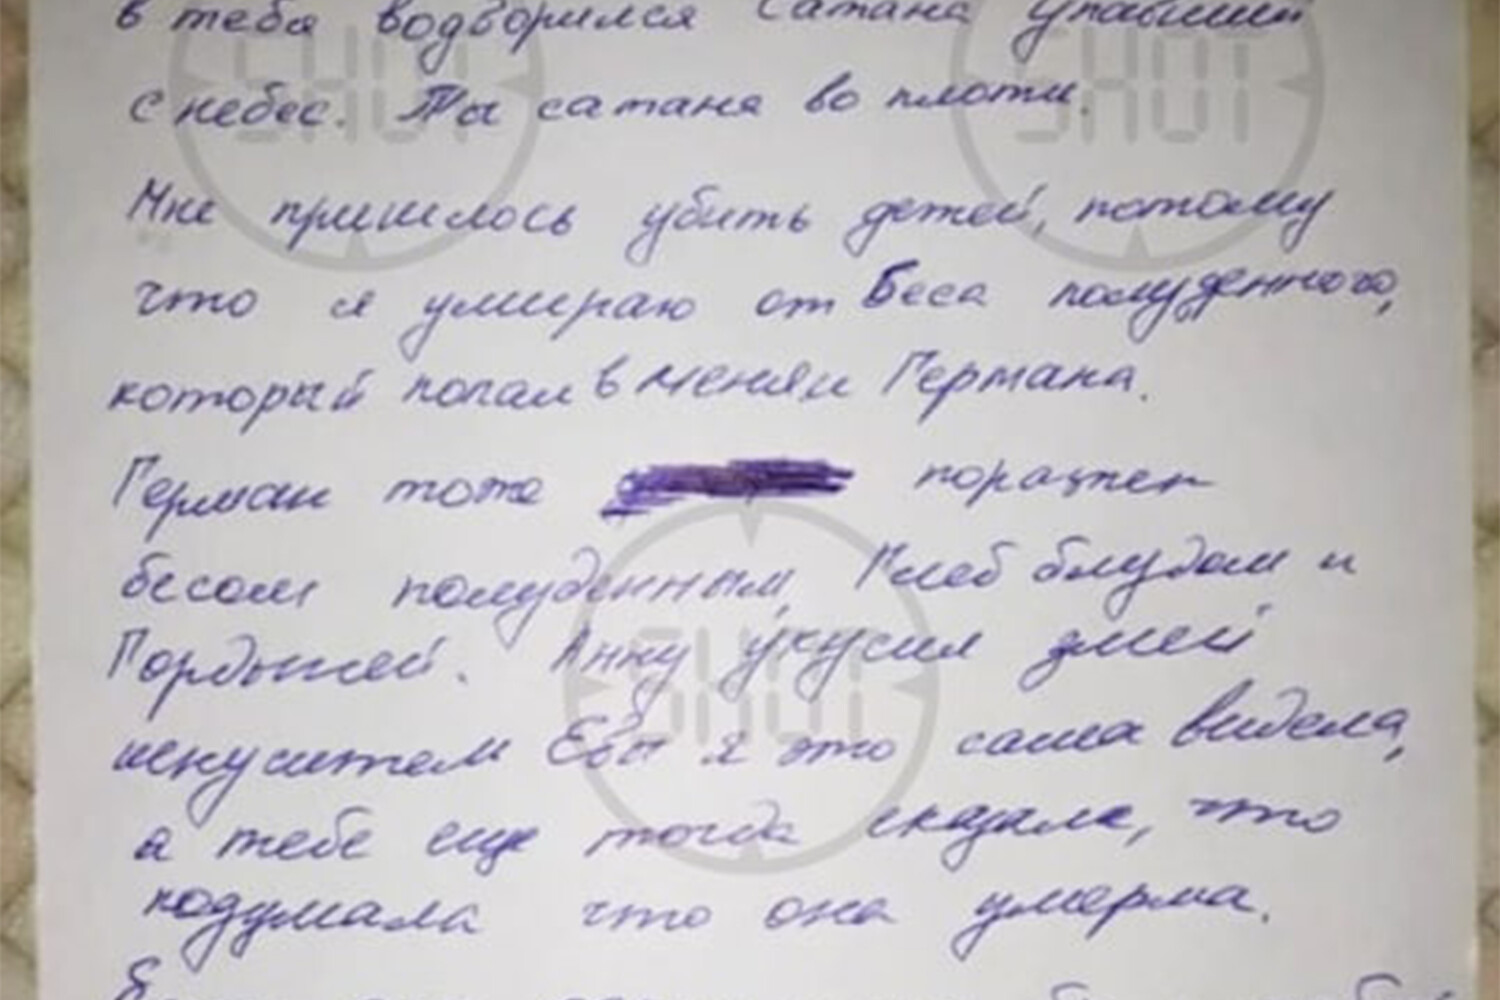 в тебя водворился Сатана упавший
с небес. Ты сатана во плоти.
Мне пришлось убить детей, потому
что я умираю от Беса полуденного,
который попал в меня и Германа.
Герман тоже поражен
бесом полуденным, Глеб блудом и
Гордыней. Анну укусил змей
искуситель Евы я это сама видела,
а тебе еще тогда сказала, что
подумала что она умерла.
SHOT
SHOT
SHOT